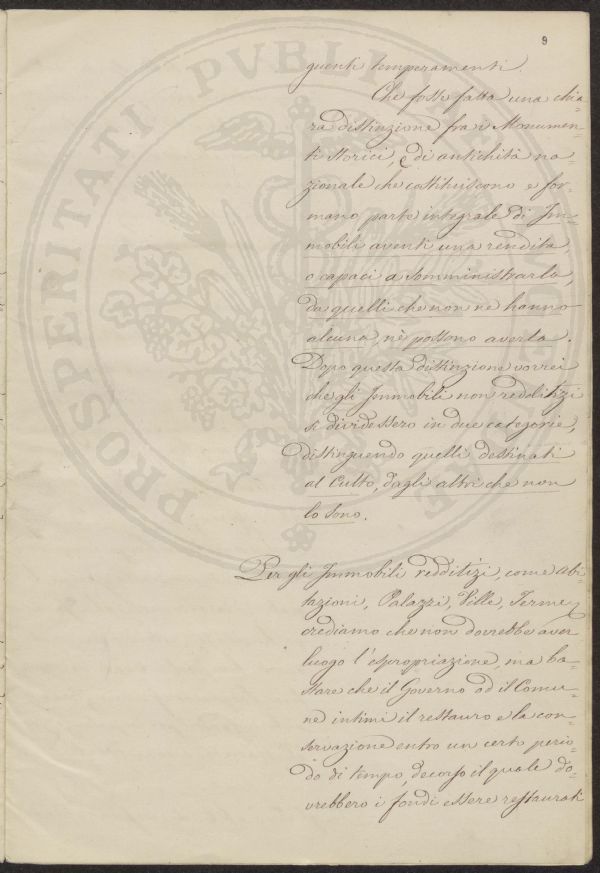 9
guenti temperamenti.
Che fosse fatta una chia=
ra distinzione fra i Monumen=
ti storici, e di antichità na=
zionale che costituiscono e for=
mano parte integrale di Im=
mobili aventi una rendita,
o capaci a somministrarla,
da quelli che non ne hanno
alcuna, nè possono averla.
Dopo questa distinzione vorrei
che gli Immobili non redditizi
si dividessero in due categorie,
distinguendo quelli destinati
al Culto, dagli altri che non
lo sono.
Per gli Immobili redditizi, come Abi=
tazioni, Palazzi, Ville, Terme,
crediamo che non dovrebbe aver
luogo l'espropriazione, ma ba=
stare che il Governo od il Comu=
ne intimi il restauro e la con=
servazione entro un certo perio=
do di tempo, decorso il quale do=
vrebbero i fondi essere restaurati
PROSPERITATI PVBLI